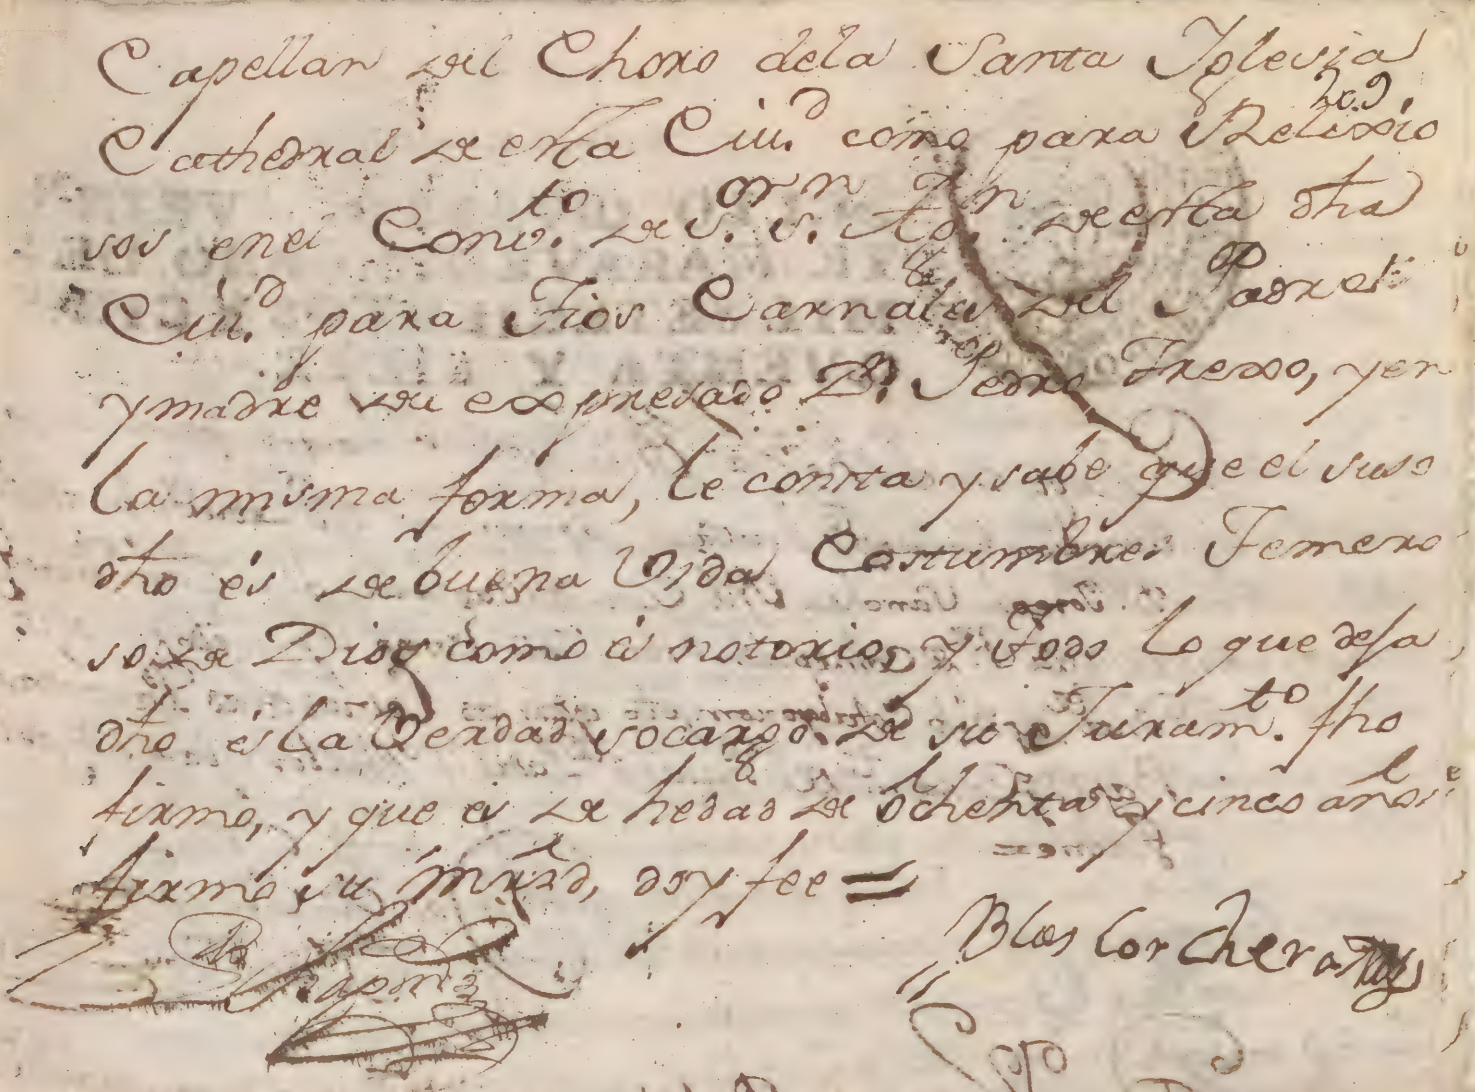 Capellan del Choro dela Santa Yglesia
Cathedral de esta Ciu.d como para Relixio
sos enel Conv.to de S.or S.n An.tn de esta dha
Ciu.d para Tios Carnales del Padre
y madre del expresado D.n Pedro Trexo, y en
la misma forma, le consta y sabe que el suso
dho és de buena Vida Costumbres Temero
so de Dios como és notorio, y todo lo que desa
dho és la Verdad socargo de su Juram.to fho
firmó, y que és de hedad de ochenta y cinco años
firmó su mrzd, doy fee =
Blas Corchera